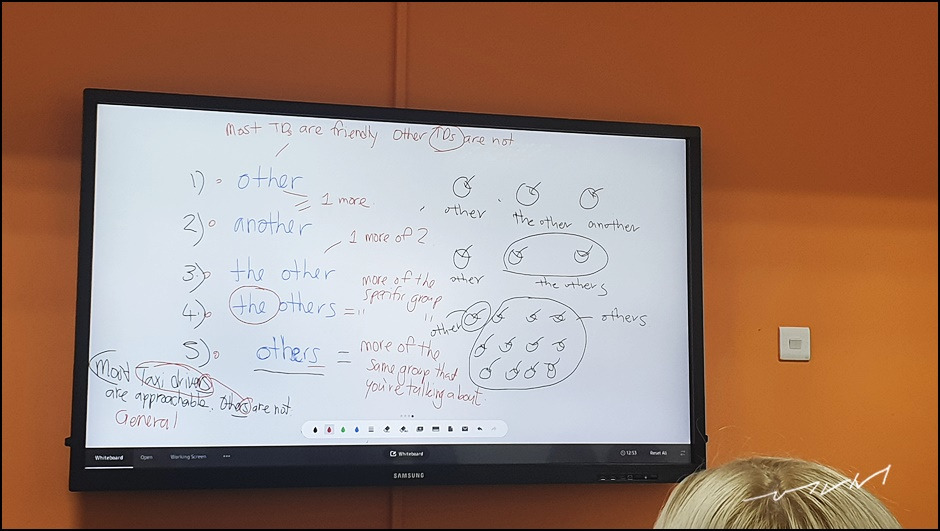 most TDs are friendly other TDs are not
1) other
1 more.
2) another
1 more of 2
3) the other
4) the others = "
more of the
specific group
"
5) others = more of the
same group that
you're talking about
Most Taxi drivers
are approachable. Others are not
General
other the other another
other the others
other others
Whiteboard Open Working Screen ... Whiteboard 12:53 Reset All
SAMSUNG